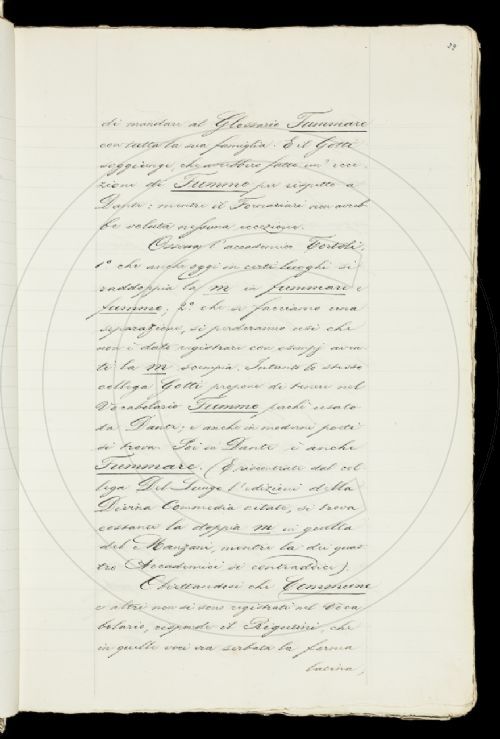 39
di mandare al Glossario Fummare
con tutta la sua famiglia. E il Gotti
soggiunge, che avrebbero fatta un' ecce-
zione di Fummo per rispetto a
Dante: mentre il Fornaciari non avreb-
be voluta nessuna eccezione.
Osserva l'accademico Tortoli,
1º che anche oggi in certi luoghi si
raddoppia la m in fummare e
fummo; 2º che se facciamo una
separazione, si perderanno voci che
non è dato registrare con esempj aven-
ti la m scempia. Intanto lo stesso
collega Gotti propone di tenere nel
Vocabolario Fummo perchè usato
da Dante; e anche in moderni poeti
si trova. Poi in Dante è anche
Fummare. (Riscontrate dal col-
lega Del Lungo l'edizioni della
Divina Commedia citate, si trova
costante la doppia m in quella
del Manzani, mentre la di qua-
tro Accademici si contraddice).
Obiettandosi che Commune
e altri non si sono registrati nel Voca-
bolario, risponde il Rigutini, che
in quelle voci era serbata la forma
latina,